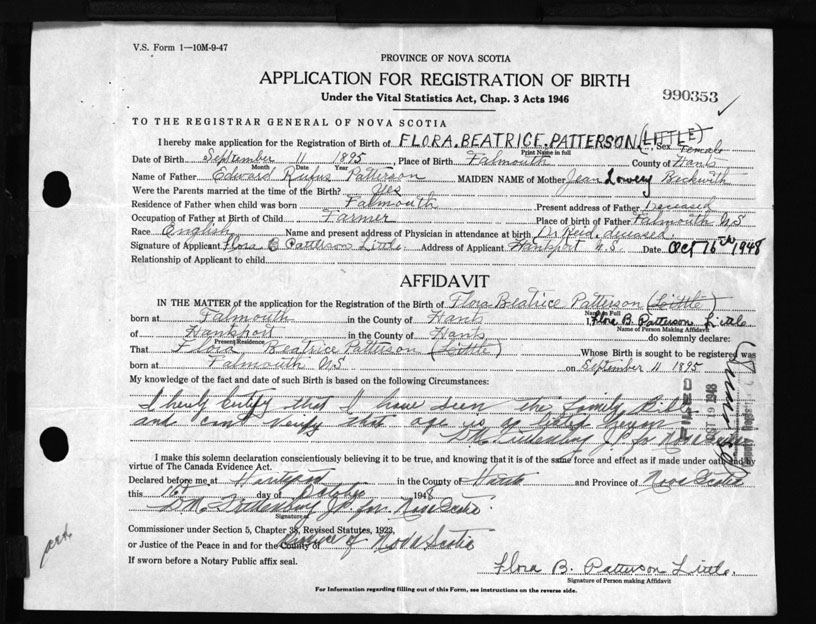 V.S. Form 1—10M-9-47
PROVINCE OF NOVA SCOTIA
APPLICATION FOR REGISTRATION OF BIRTH
990353
Under the Vital Statistics Act, Chap. 3 Acts 1946
TO THE REGISTRAR GENERAL OF NOVA SCOTIA
I hereby make application for the Registration of Birth of FLORA. BEATRICE. PATTERSON (LITTLE) Sex Female
Print Name in full
Date of Birth September 11 1895, Place of Birth Falmouth County of Hants
Month Date Year
Name of Father Edward Rufus Patterson MAIDEN NAME of Mother Jean Lowery Beckwith
Were the Parents married at the time of the Birth? Yes
Residence of Father when child was born Falmouth Present address of Father Deceased
Occupation of Father at Birth of Child Farmer Place of birth of Father Falmouth N.S
Race English Name and present address of Physician in attendance at birth Dr Reid, deceased.
Signature of Applicant Flora B Patterson Little. Address of Applicant Hantsport N.S. Date Oct 16th 1948
Relationship of Applicant to child
AFFIDAVIT
IN THE MATTER of the application for the Registration of Birth of Flora Beatrice Patterson (Little)
Name in Full
born at Falmouth in the County of Hants I, Flora B. Patterson Little
Name of Person Making Affidavit
of Hantsport in the County of Hants do solemnly declare:
Present Residence
That Flora Beatrice Patterson (Little) Whose Birth is sought to be registered was
born at Falmouth NS on September 11 1895
My knowledge of the fact and date of such Birth is based on the following Circumstances:
I hereby certify that I have seen the family Bible
and can verify that age is as
J.P. for Nova Scotia
OCT 19 1948
I make this solemn declaration conscientiously believing it to be true, and knowing that it is of the same force and effect as if made under oath and by
virtue of The Canada Evidence Act.
Declared before me at Hantsport in the County of Hants and Province of Nova Scotia
this 16th day of October 1948
J.P. for Nova Scotia.
Signature of
Commissioner under Section 5, Chapter 38, Revised Statutes, 1923,
or Justice of the Peace in and for the County of Province of Nova Scotia
If sworn before a Notary Public affix seal.
Flora B. Patterson Little.
Signature of Person making Affidavit
For Information regarding filling out of this Form, see instructions on the reverse side.